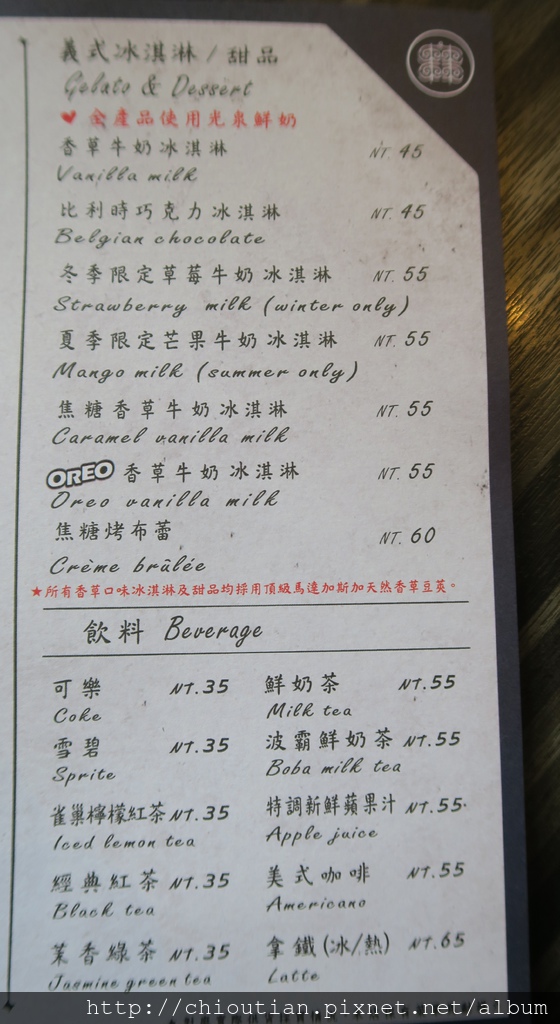 義式冰淇淋 / 甜品
Gelato & Dessert
♥ 全產品使用光泉鮮奶
香草牛奶冰淇淋 NT. 45
Vanilla milk
比利時巧克力冰淇淋 NT. 45
Belgian chocolate
冬季限定草莓牛奶冰淇淋 NT. 55
Strawberry milk (winter only)
夏季限定芒果牛奶冰淇淋 NT. 55
Mango milk (summer only)
焦糖香草牛奶冰淇淋 NT. 55
Caramel vanilla milk
OREO 香草牛奶冰淇淋 NT. 55
Oreo vanilla milk
焦糖烤布蕾 NT. 60
Crème brûlée
★所有香草口味冰淇淋及甜品均採用頂級馬達加斯加天然香草豆莢。
飲料 Beverage
可樂 NT.35
Coke
雪碧 NT.35
Sprite
雀巢檸檬紅茶 NT.35
Iced lemon tea
經典紅茶 NT.35
Black tea
茉香綠茶 NT.35
Jasmine green tea
鮮奶茶 NT.55
Milk tea
波霸鮮奶茶 NT.55
Boba milk tea
特調新鮮蘋果汁 NT.55
Apple juice
美式咖啡 NT.55
Americano
拿鐵(冰/熱) NT.65
Latte
http://chioutian.pixnet.net/album